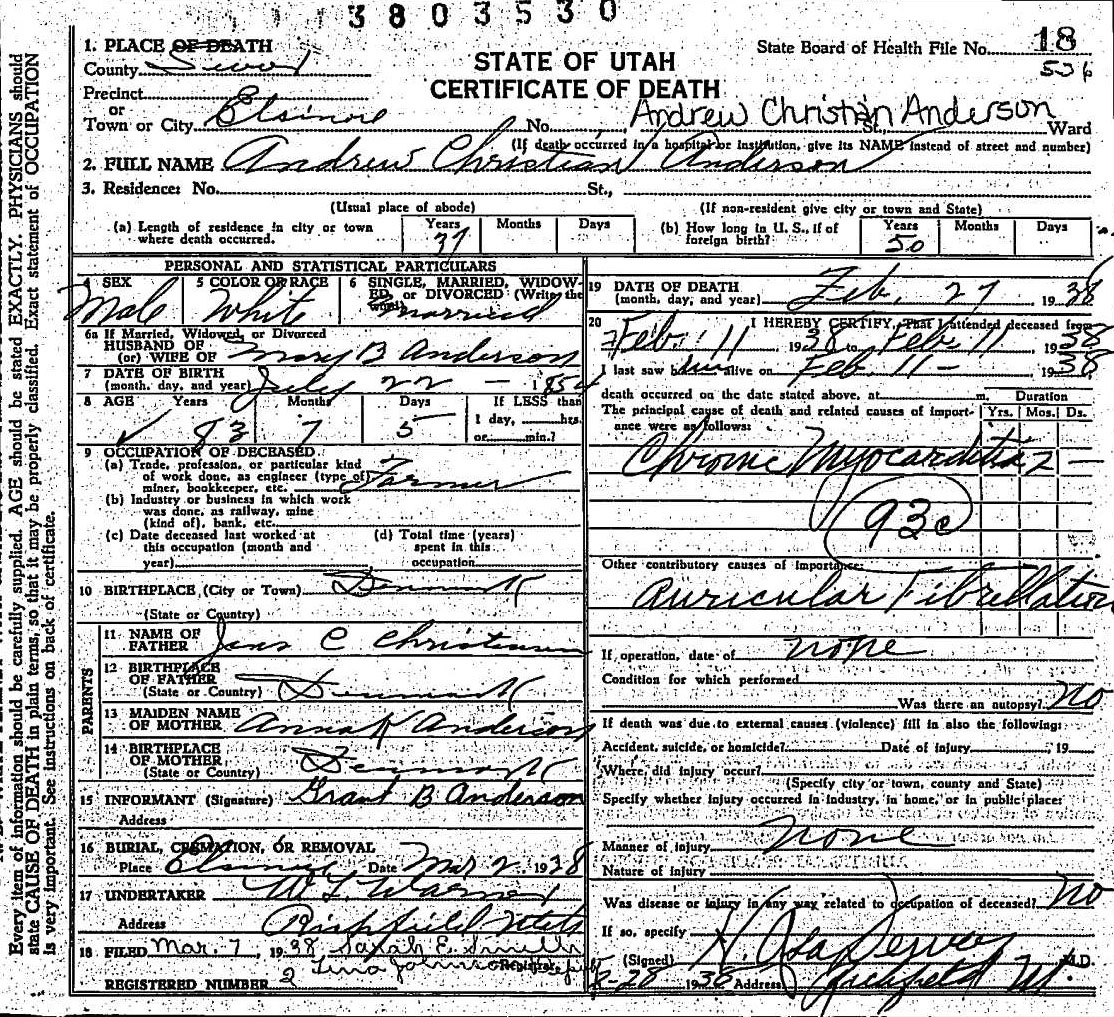 3803530
1. PLACE OF DEATH
STATE OF UTAH
CERTIFICATE OF DEATH
State Board of Health File No. 18
536
County Sevier
Precinct
or
Town or City Elsinore No. St., Ward
Andrew Christian Anderson
(If death occurred in a hospital or institution, give its NAME instead of street and number)
2. FULL NAME Andrew Christian Anderson
3. Residence: No. St.,
(Usual place of abode) (If non-resident give city or town and State)
(a) Length of residence in city or town where death occurred. Years 37 Months Days
(b) How long in U. S., if of foreign birth? Years 50 Months Days
PERSONAL AND STATISTICAL PARTICULARS
4 SEX Male
5 COLOR OR RACE White
6 SINGLE, MARRIED, WIDOWED, or DIVORCED (Write the word) Married
6a If Married, Widowed, or Divorced
HUSBAND OF
(or) WIFE OF Mary B Anderson
7 DATE OF BIRTH
(month, day, and year) July 22 - 1854
8 AGE Years 83 Months 7 Days 5
If LESS than 1 day, hrs. or min.?
9 OCCUPATION OF DECEASED
(a) Trade, profession, or particular kind
of work done, as engineer (type of)
miner, bookkeeper, etc. Farmer
(b) Industry or business in which work
was done, as railway, mine
(kind of), bank, etc.
(c) Date deceased last worked at
this occupation (month and
year)
(d) Total time (years)
spent in this
occupation
10 BIRTHPLACE (City or Town) Denmark
(State or Country)
PARENTS
11 NAME OF
FATHER Jens C Christensen
12 BIRTHPLACE
OF FATHER
(State or Country) Denmark
13 MAIDEN NAME
OF MOTHER Anna K Anderson
14 BIRTHPLACE
OF MOTHER
(State or Country) Denmark
15 INFORMANT (Signature) Grant B Anderson
Address
16 BURIAL, CREMATION, OR REMOVAL
Place Elsinore Date Mar 2 1938
17 UNDERTAKER
Address Richfield Utah
18 FILED Mar. 7, 1938 Sarah E. Smith
Tina Johnson Registrar
REGISTERED NUMBER 2
19 DATE OF DEATH
(month, day, and year) Feb. 27 1938
20 I HEREBY CERTIFY, That I attended deceased from
Feb. 11 1938 to Feb. 11 1938
I last saw him alive on Feb. 11 - 1938
death occurred on the date stated above, at m. Duration
The principal cause of death and related causes of importance were as follows: Yrs. Mos. Ds.
Chronic Myocarditis 2 -
93c
Other contributory causes of importance:
Auricular Fibrellation
If operation, date of none
Condition for which performed
Was there an autopsy? No
If death was due to external causes (violence) fill in also the following:
Accident, suicide, or homicide? Date of injury 19
Where did injury occur?
(Specify city or town, county and State)
Specify whether injury occurred in industry, in home, or in public place:
Manner of injury none
Nature of injury
Was disease or injury in any way related to occupation of deceased? No
If so, specify
(Signed) M.D.
2-28 1938 Address Richfield
Every item of information should be carefully supplied. AGE should be stated EXACTLY. PHYSICIANS should
state CAUSE OF DEATH in plain terms, so that it may be properly classified. Exact statement of OCCUPATION
is very important. See instructions on back of certificate.